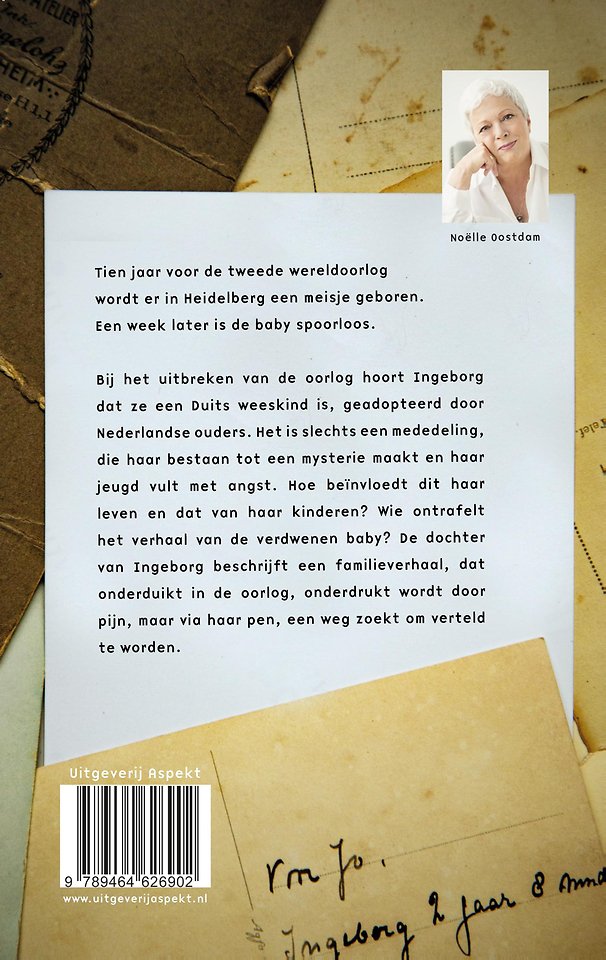 ATELIER
HEIM
Noëlle Oostdam
Tien jaar voor de tweede wereldoorlog
wordt er in Heidelberg een meisje geboren.
Een week later is de baby spoorloos.
Bij het uitbreken van de oorlog hoort Ingeborg
dat ze een Duits weeskind is, geadopteerd door
Nederlandse ouders. Het is slechts een mededeling,
die haar bestaan tot een mysterie maakt en haar
jeugd vult met angst. Hoe beïnvloedt dit haar
leven en dat van haar kinderen? Wie ontrafelt
het verhaal van de verdwenen baby? De dochter
van Ingeborg beschrijft een familieverhaal, dat
onderduikt in de oorlog, onderdrukt wordt door
pijn, maar via haar pen, een weg zoekt om verteld
te worden.
Uitgeverij Aspekt
9 789464 626902
www.uitgeverijaspekt.nl
Jo.
Ingeborg 2 jaar 8